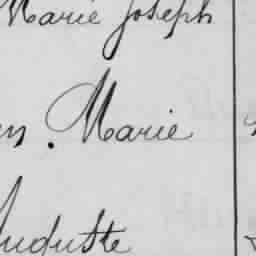 Marie Joseph
en. Marie
Auguste